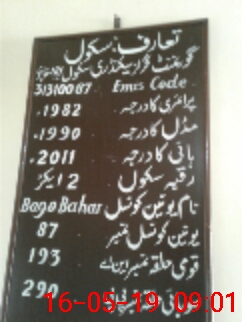 تعارف سکول
گورنمنٹ گرلز سیکنڈری سکول
31310087 Emis Code
پرائمری کا درجہ 1982ء
مڈل کا درجہ 1990ء
ہائی کا درجہ 2011ء
رقبہ سکول 2 ایکڑ
نام یونین کونسل Bago Bahar
یونین کونسل نمبر 87
قومی حلقہ نمبر این اے 193
290
16-05-19 09:01